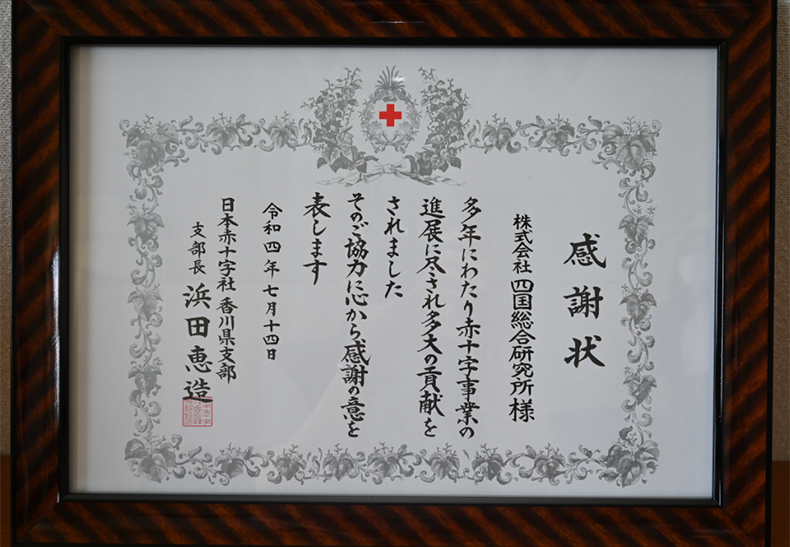 感謝状
株式会社 四国総合研究所 様
多年にわたり赤十字事業の
進展に尽され多大の貢献を
されました
そのご協力に心から感謝の意を
表します
令和四年七月十四日
日本赤十字社 香川県支部
支部長 浜田恵造